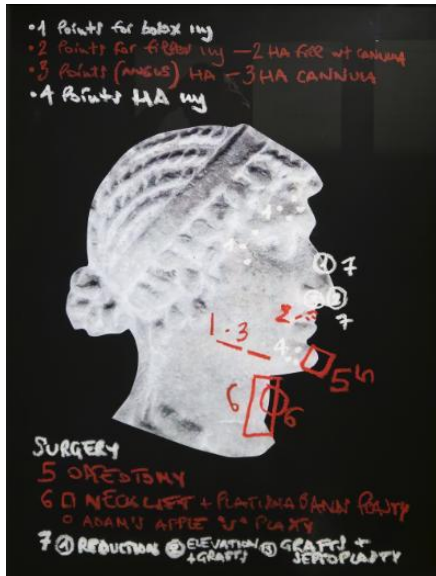 ·1 Points for botox inj
·2 Points for filler inj — 2 HA fill wt cannula
·3 Points (ANGUS) HA — 3 HA CANNULA
·4 Points HA inj
1
4
1 7
3 2
7
2
1·3
4
5
6
6
SURGERY
5 OSTEOTOMY
6 □ NECK LIFT + PLATISMA BANDS PLASTY
○ ADAM'S APPLE PLAXY
7 ① REDUCTION ② ELEVATION + GRAFTS ③ GRAFTS + SEPTOPLASTY